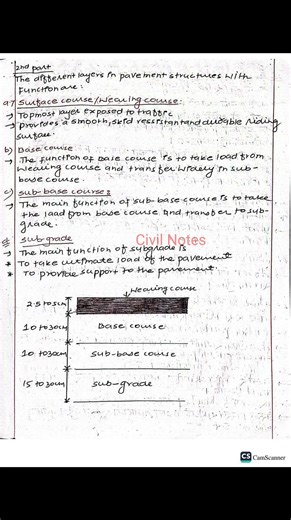 2nd part
The different layers in pavement structures with
function are:
a) Surface course/wearing course:
→ Topmost layer exposed to traffic
→ Provides a smooth, skid resistant and durable riding
surface.
b) Base course
→ The function of base course is to take load from
wearing course and transfer widely in sub-
base course.
c) Sub-base course:
→ The main function of sub-base course is to take
the load from base course and transfer to sub-
grade.
d) sub-grade
Civil Notes
→ The main function of subgrade is
* To take ultimate load of the pavement
* To provide support to the pavement
wearing course
2.5 to 5cm
10 to 30cm Base course
10 to 30cm Sub-base course
15 to 30cm Sub-grade
CS CamScanner